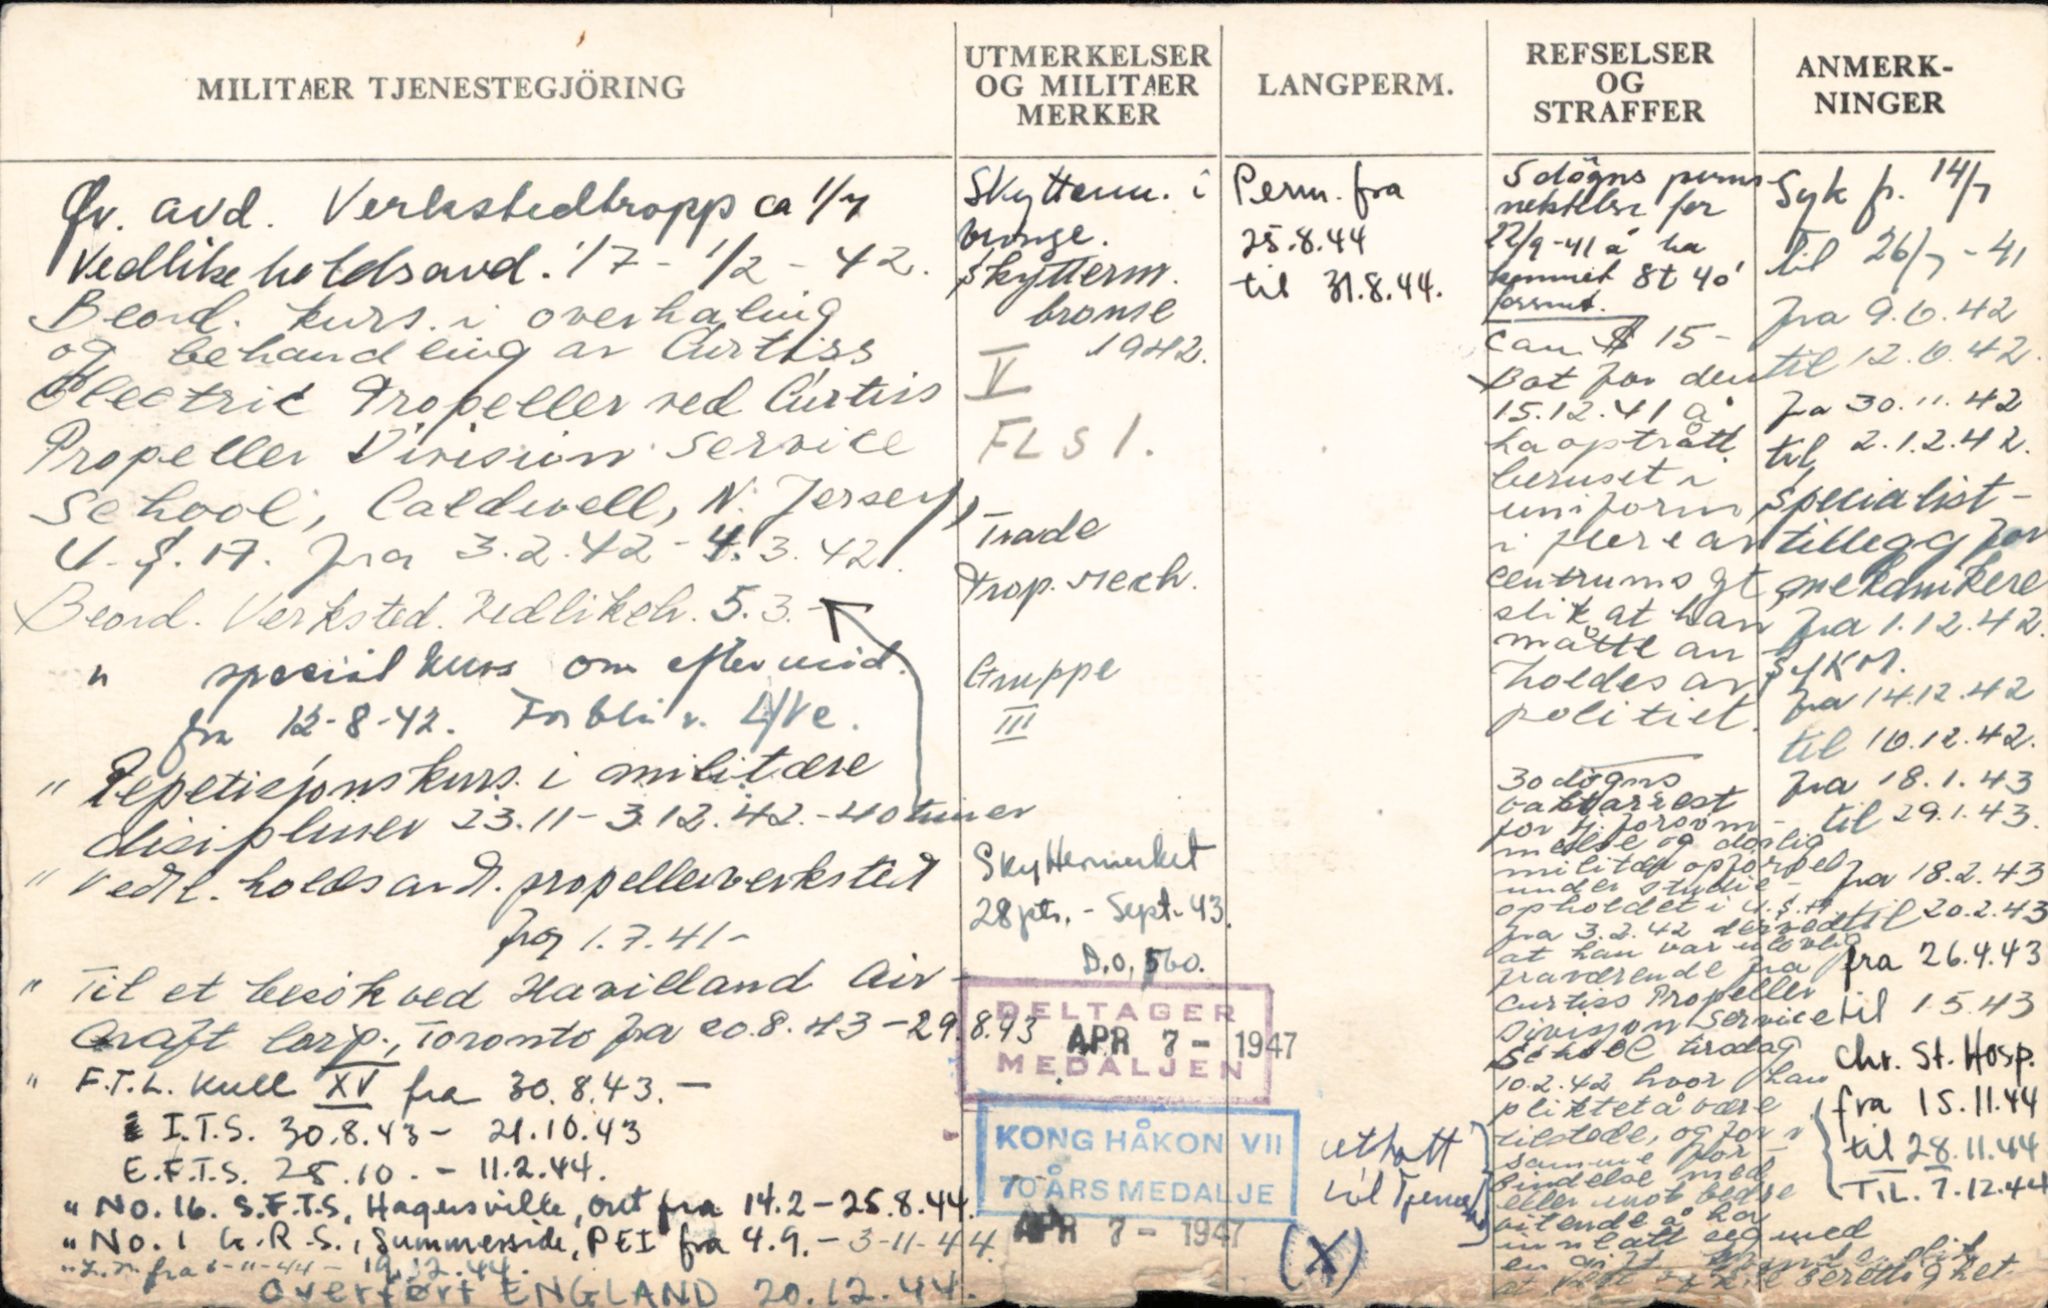 MILITÆR TJENESTEGJÖRING
Øv. avd. Verkstedtropp ca 1/7
Vedlikeholdsavd. 1/7 - 1/2 - 42.
Beord. kurs. i overhaling
og behandling av Curtiss
Electric Propeller ved Curtiss
Propeller Division Service
School, Caldwell, N. Jersey,
U.S.A. fra 3.2.42 - 4.3.42.
Beord. Verksted. Vedlikeh. 5.3. -
" spesial kurs om eftermid.
fra 12-8-42. Forbli v. L/Ve.
" Repetisjonskurs i militære
disipliner 23.11 - 3.12.42. - 40 timer
" Vedl. holdsavd. propellerverksted
fra 1.7.41 -
" Til et besök ved Havilland Air-
craft Corp., Toronto fra 20.8.43 - 29.8.43
" F.T.L. Kull XV fra 30.8.43. -
I.T.S. 30.8.43 - 21.10.43
E.F.T.S. 25.10. - 11.2.44.
" No. 16. S.F.T.S, Hagersville, Ont fra 14.2 - 25.8.44.
" No. 1 G.R.S., Summerside, PEI fra 4.9. - 3-11-44.
fra 6-11-44 - 19.12.44.
Overført ENGLAND 20.12.44.
UTMERKELSER
OG MILITÆR
MERKER
Skytterm. i
bronze.
Skytterm.
bronse
1942.
V
FLS 1.
Trade
Prop. Mech.
Gruppe
III
Skyttermerket
28 pts. - Sept. 43.
D.O. 560.
DELTAGER
APR 7 - 1947
MEDALJEN
KONG HÅKON VII
70 ÅRS MEDALJE
APR 7 - 1947
LANGPERM.
Perm. fra
25.8.44
til 31.8.44.
uthatt
til Tjeneste
(X)
REFSELSER
OG
STRAFFER
5 dögns perms
nektelse for
22/9-41 å ha
kommet 8t 40'
forsent.
Can $ 15 -
Bot for den
15.12.41 å
ha opptrått
beruset i
uniform
i flere av
centrums gt
slik at han
måtte an-
holdes av
politiet.
30 dögns
vaktarrest
for tj. forsöm-
melse og dårlig
militær opförsel
under studie-
opholdet i U.S.A.
fra 3.2.42 derved
at han var ulovlig
fraværende fra
Curtiss Propeller
Division Service
School tirsdag
10.2.42 hvor han
pliktet å være
tilstede, og for i
samme for-
bindelse med
eller mot bedre
vitende å ha
innlatt seg med
ANMERK-
NINGER
Syk fr. 14/7
til 26/7 - 41
fra 9.6.42
til 12.6.42.
fra 30.11.42
til 2.12.42.
Spesialist-
tillegg for
mekanikere
fra 1.12.42.
Sykm.
fra 14.12.42
til 16.12.42.
fra 18.1.43
til 29.1.43.
fra 18.2.43
til 20.2.43
fra 26.4.43
til 1.5.43
Chr. St. Hosp.
fra 15.11.44
til 28.11.44
TIL 7.12.44